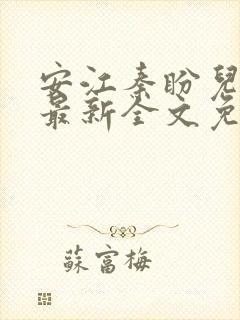 安江秦盼兒
最新全文免
蘇富梅